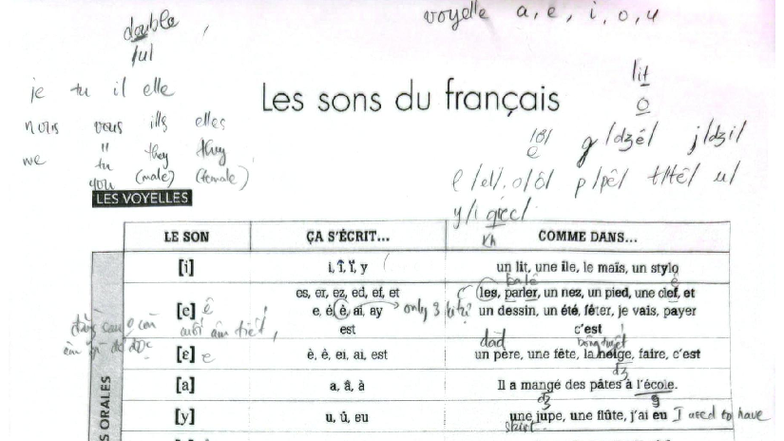 double
voyelle a, e, i, o, u
/u/
lit
je tu il elle
Les sons du français
o
nous vous ills elles
we " they they
tu
you (male) (female)
g /dʒê/ j /dʒi/
e
p /pê/ t /tê/
y /i grec/
LES VOYELLES
LE SON ÇA S'ÉCRIT... COMME DANS...
[i] i, î, ï, y un lit, une île, le maïs, un stylo
es, er, ez, ed, ef, et les, parler, un nez, un pied, une clef, et
[e] ê e, é, ê, ai, ay only 3 un dessin, un été, fêter, je vais, payer
est c'est
[ɛ] e è, ê, ei, ai, est un père, une fête, la neige, faire, c'est
[a] a, â, à Il a mangé des pâtes à l'école.
[y] u, û, eu une jupe, une flûte, j'ai eu I used to have
skirt
S ORALES